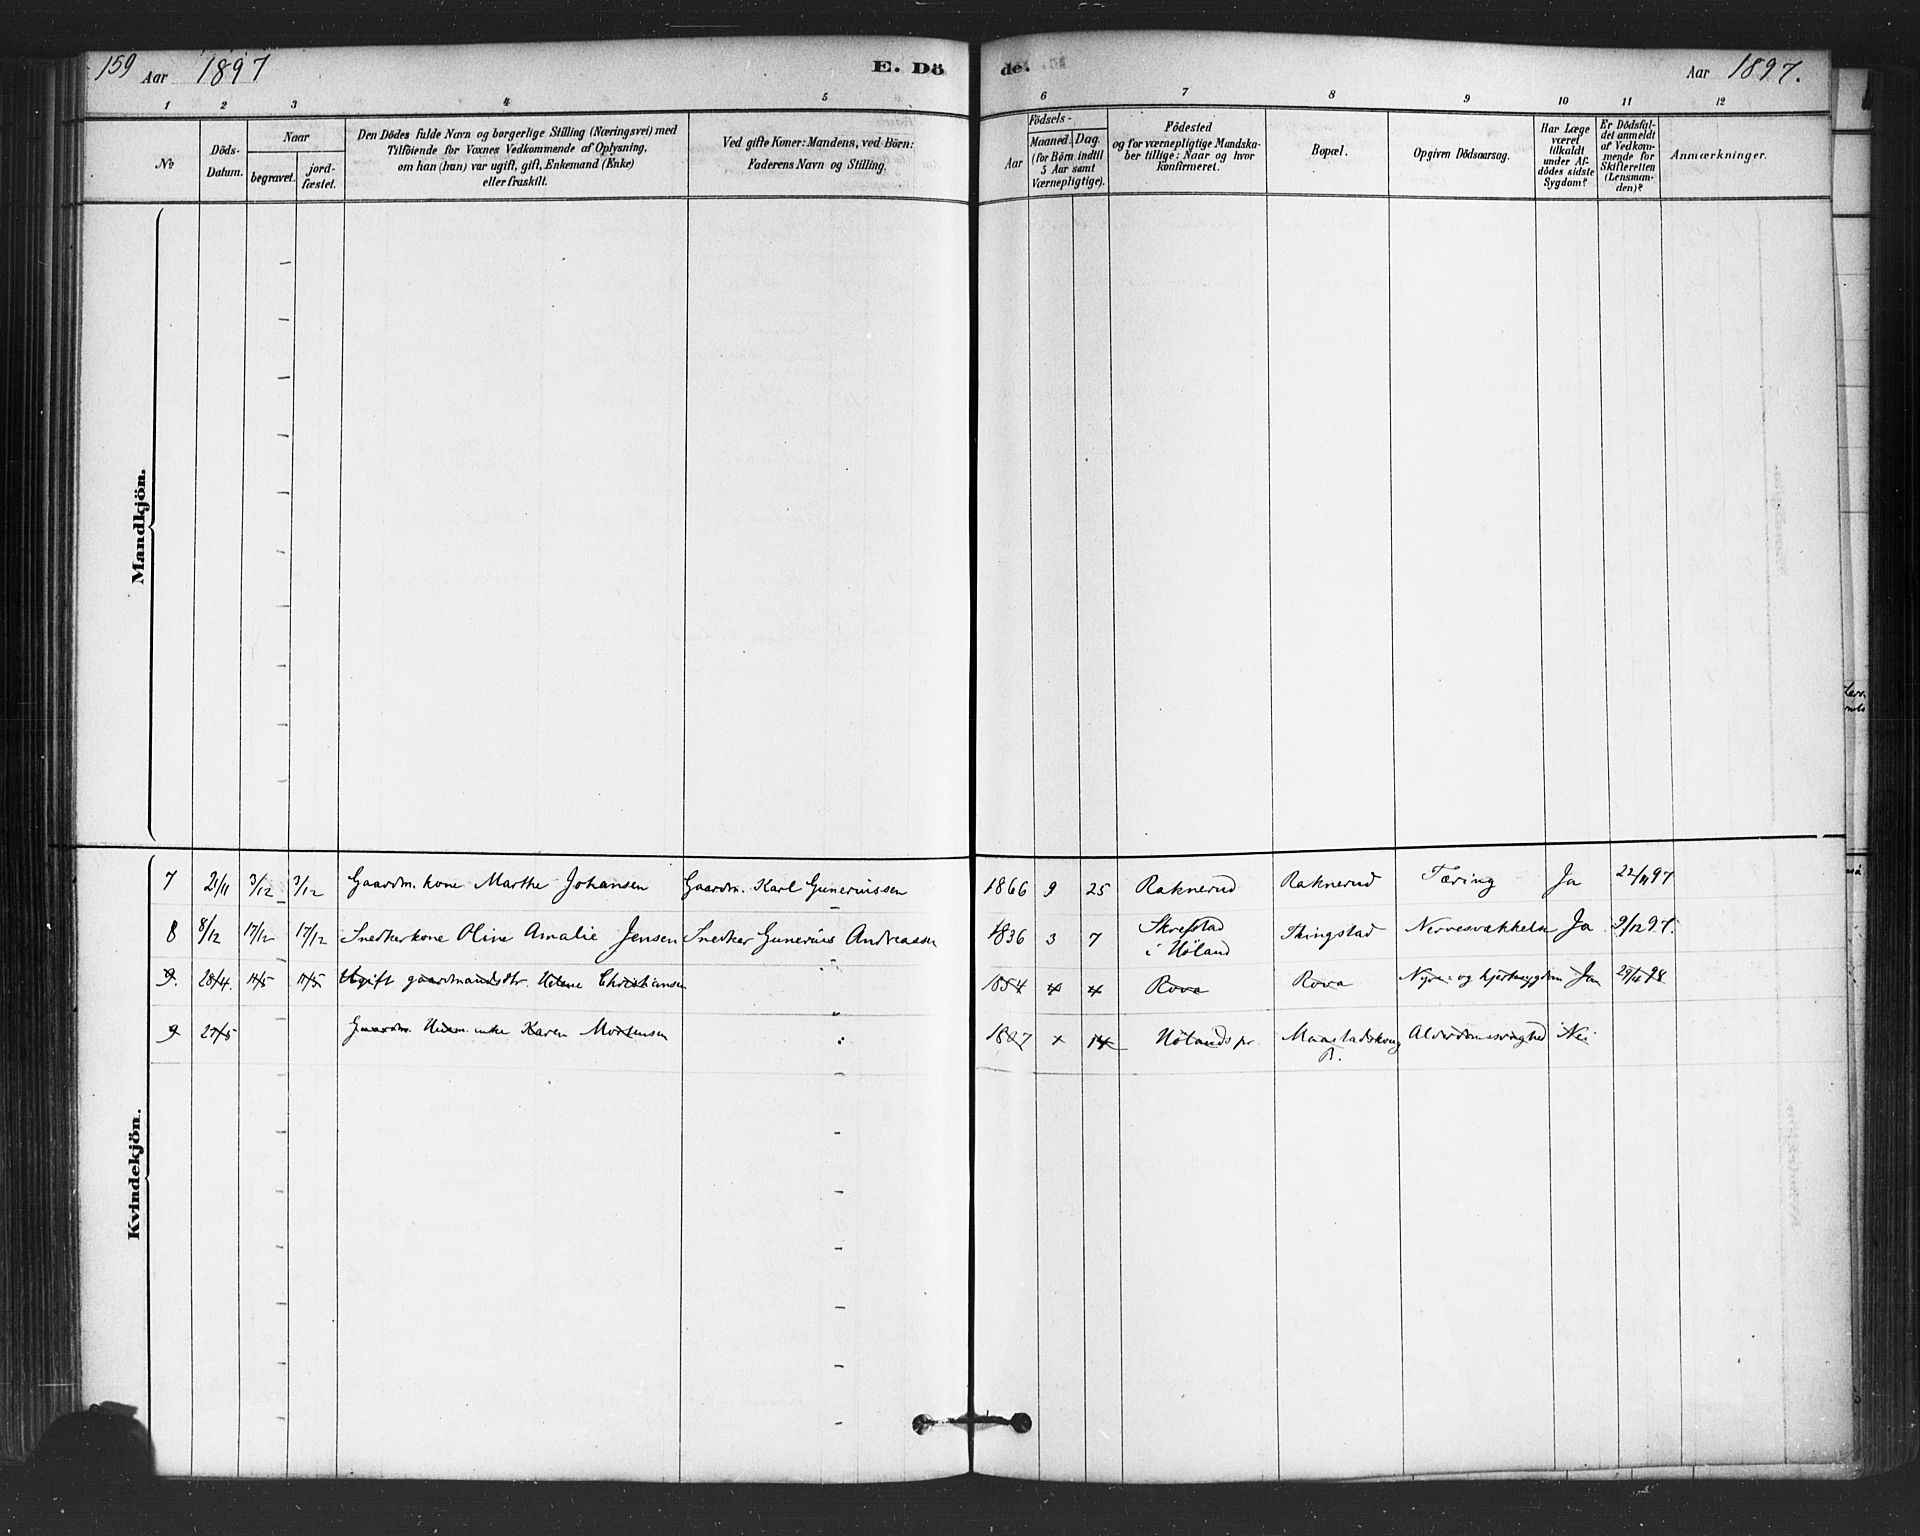 159 Aar 1897 E. Dö de. Aar 1897.
1 2 3 4 5 6 7 8 9 10 11 12
№
Döds-Datum.
Naar
begravet.
jord-fæstet.
Den Dödes fulde Navn og borgerlige Stilling (Næringsvei) med
Tilföiende for Voxnes Vedkommende af Oplysning,
om han (hun) var ugift, gift, Enkemand (Enke)
eller fraskilt.
Ved gifte Koner: Mandens, ved Börn:
Faderens Navn og Stilling.
Födsels-
Aar
Maaned. Dag.
(for Börn indtil
5 Aar samt
Værnepligtige).
Födested
og for værnepligtige Mandska-
ber tillige: Naar og hvor
konfirmeret.
Bopæl.
Opgiven Dödsaarsag.
Har Læge
været
tilkaldt
under Af-
dödes sidste
Sygdom?
Er Dödsfal-
det anmeldt
af Vedkom-
mende for
Skifteretten
(Lensman-
den)?
Anmærkninger.
Mandkjön.
Kvindekjön.
7 21/11 3/12 3/12 Gaardm. kone Marthe Johansen Gaardm. Karl Guneriussen 1866 9 25 Raknerud Raknerud Tæring Ja 22/11 97
8 8/12 17/12 17/12 Snedkerkone Oline Amalie Jensen Snedker Gunerius Andreassen 1836 3 7 Skrefstad
i Höland Thingstad Nervesvækkelse Ja 9/12 97.
9. 28/4. 11/5 11/5 Ugift gaardmandsdtr. Helene Christiansen 1854 Rova Rova Nyre- og hjertesygdom Ja 29/4 98
9 27/5 Gaardm. enke Karen Mortensen 1807 14 Hölands pr. Alderdomssvaghed Nei